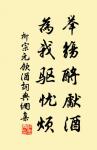 举觞酹献酒
为我驱忧烦
柳宗元饮酒词典网集